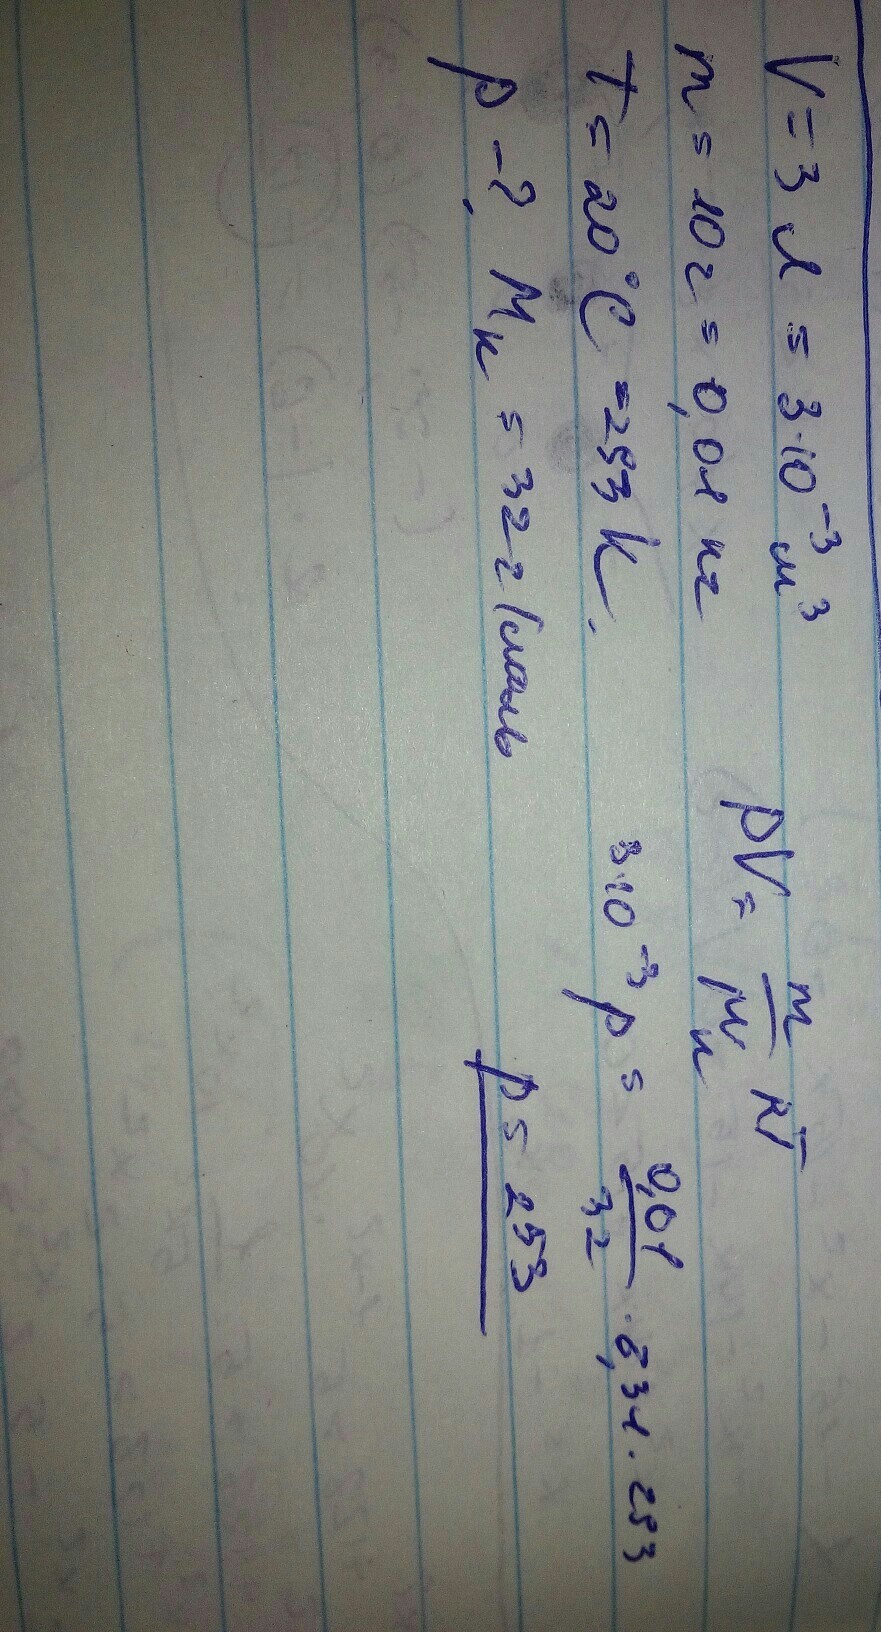 V = 3 л = 3·10⁻³ м³
m = 10г = 0,01 кг
T = 20°C = 293 K.
p - ? Mк = 32 г/моль
pV = m/Mк RT
3·10⁻³ p = 0,01/32 · 8,31 · 293
p = 253